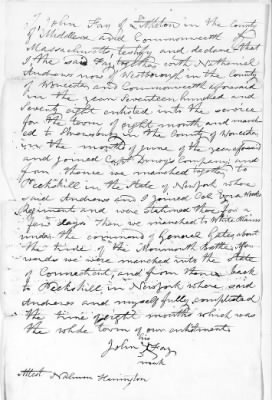 I, John Fay of Littleton in the County
of Middlesex and Commonwealth of
Massachusetts, testify and declare that
I the said Fay together with Nathaniel
Andrews now of Westborough in the County
of Worcester and Commonwealth aforesaid
in the year Seventeen hundred and
Seventy eight enlisted into the service
for the term of eight months and march
ed to Shrewsbury in the County of Worcester
in the month of June of the year aforesaid
and joined Capt Company and
from thence we marched together to
Peekskill in the State of New York where
said Andrews and I joined Col
Regiment and were Stationed there for a
few days Then we marched to White Plains
under the command of General Gates about
the time of the Monmouth Battle, After
wards we were marched into the State
of Connecticut, and from thence back
to Peekskill in New York where said
Andrews and myself fully completed
the time of eight months which was
the whole term of our enlistment
his
John X Fay
mark
Attest Nahum Harrington